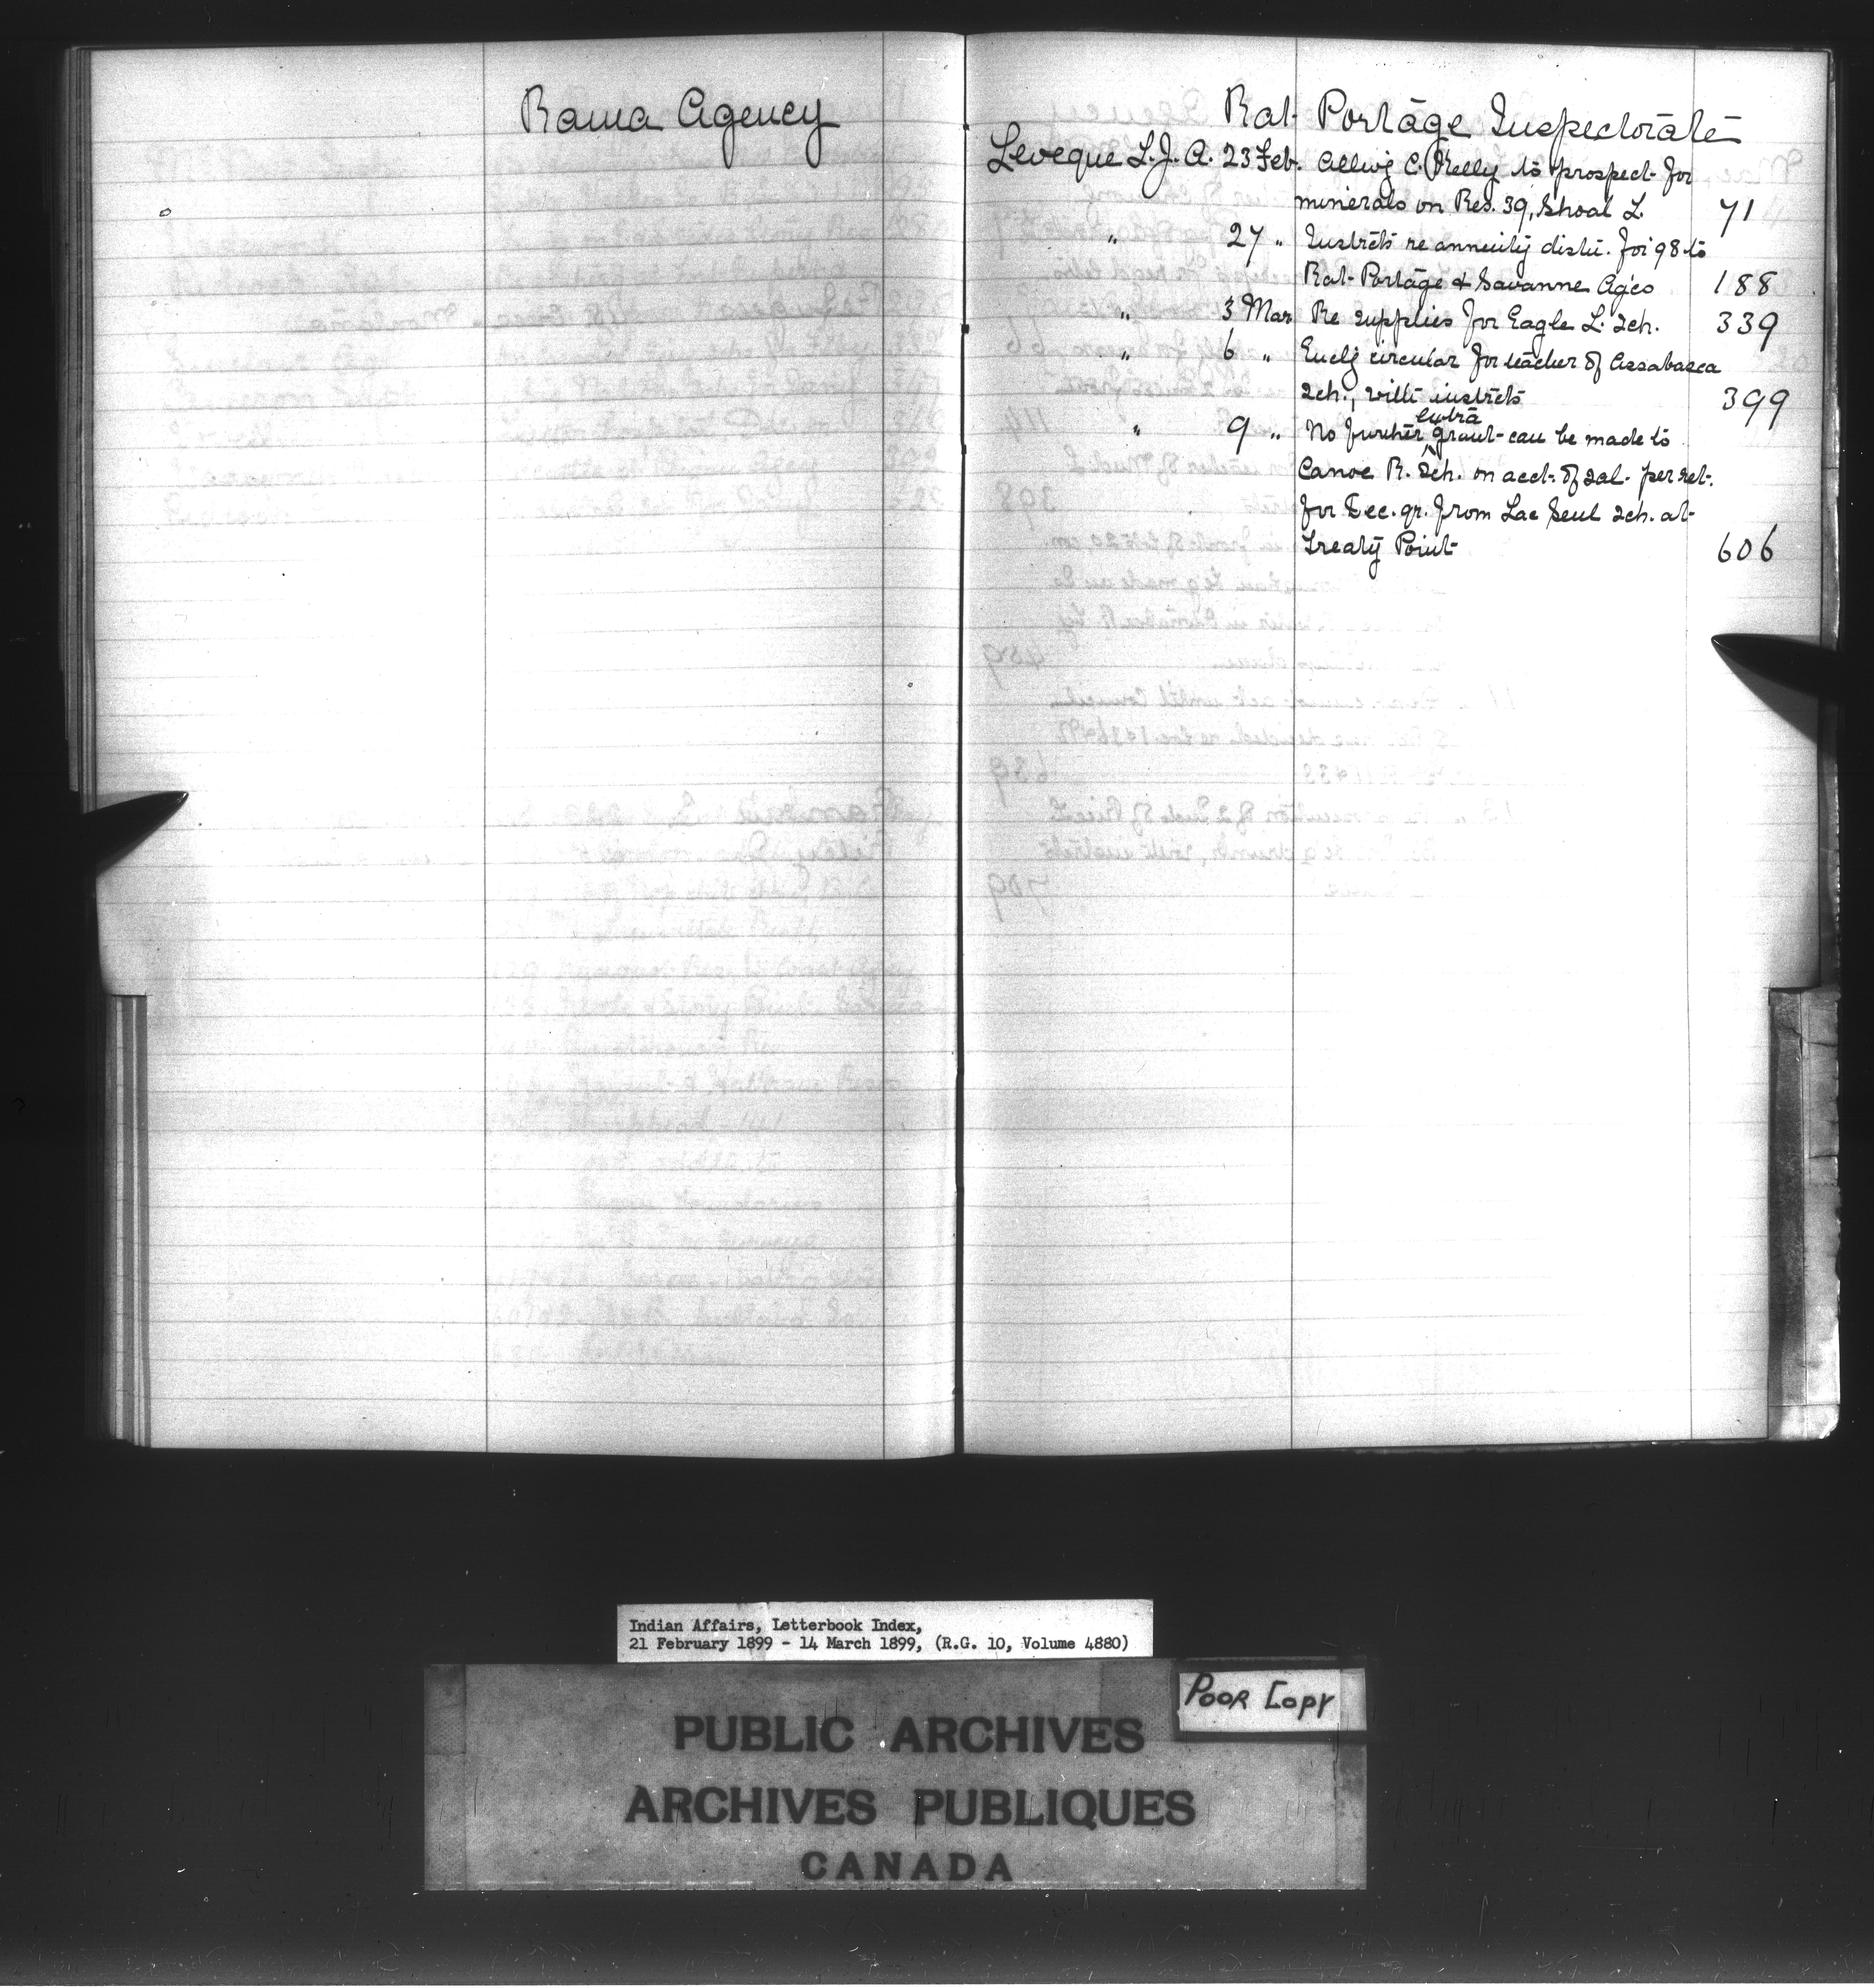 Rama Agency
Rat Portage Inspectorate
Leveque L. J. A. 23 Feb. Allwg C. Kelly to prospect for
minerals on Res. 39, Shoal L. 71
" 27 " Instrcts re annuity distn. for 98 to
Rat Portage & Savanne Agcs 188
" 3 Mar Re supplies for Eagle L. Sch. 339
" 6 " Enclg circular for teacher of Assabasca
Sch., with instrcts 399
extra
" 9 " No further ^ grant can be made to
Canoe R. Sch. on acct. of sal. per ret.
for Dec. qr. from Lac Seul Sch. at
Treaty Point 606
Indian Affairs, Letterbook Index,
21 February 1899 - 14 March 1899, (R.G. 10, Volume 4880)
POOR COPY
PUBLIC ARCHIVES
ARCHIVES PUBLIQUES
CANADA